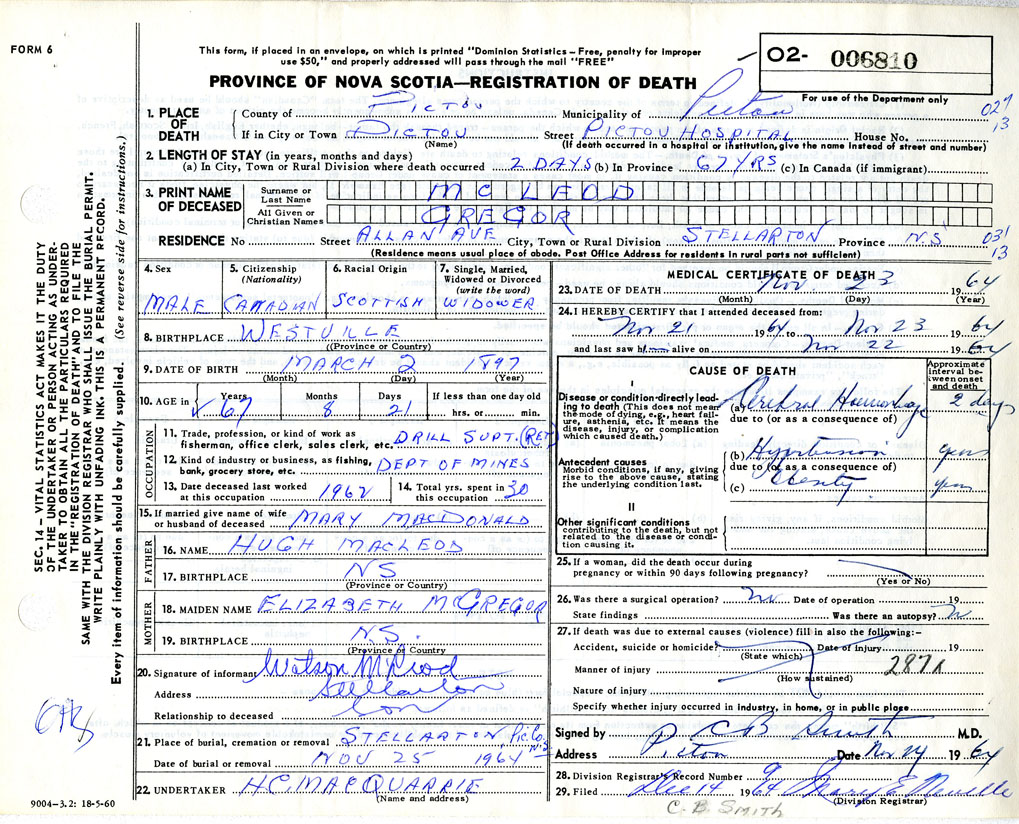 FORM 6
This form, if placed in an envelope, on which is printed "Dominion Statistics – Free, penalty for improper
use $50," and properly addressed will pass through the mail "FREE"
02- 006810
PROVINCE OF NOVA SCOTIA—REGISTRATION OF DEATH
For use of the Department only
1. PLACE OF DEATH
County of PICTOU Municipality of Pictou
If in City or Town PICTOU Street PICTOU HOSPITAL House No.
(Name) (If death occurred in a hospital or institution, give the name instead of street and number)
13
2. LENGTH OF STAY (in years, months and days)
(a) In City, Town or Rural Division where death occurred 2 DAYS (b) In Province 67 YRS (c) In Canada (if immigrant)
3. PRINT NAME OF DECEASED
Surname or Last Name MC LEOD
All Given or Christian Names GREGOR
RESIDENCE No Street ALLAN AVE City, Town or Rural Division STELLARTON Province N.S 031
13
(Residence means usual place of abode. Post Office Address for residents in rural parts not sufficient)
4. Sex MALE
5. Citizenship (Nationality) CANADIAN
6. Racial Origin SCOTTISH
7. Single, Married, Widowed or Divorced (write the word) WIDOWER
8. BIRTHPLACE WESTVILLE
(Province or Country)
9. DATE OF BIRTH MARCH 2 1897
(Month) (Day) (Year)
10. AGE in Years 67 Months 8 Days 21 If less than one day old hrs. or min.
OCCUPATION
11. Trade, profession, or kind of work as
Fisherman, office clerk, sales clerk, etc. DRILL SUPT. (RET)
12. Kind of industry or business, as fishing,
bank, grocery store, etc. DEPT OF MINES
13. Date deceased last worked
at this occupation 1962
14. Total yrs. spent in
this occupation 30
15. If married give name of wife
or husband of deceased MARY MACDONALD
FATHER
16. NAME HUGH MACLEOD
17. BIRTHPLACE NS
(Province or Country)
MOTHER
18. MAIDEN NAME ELIZABETH MCGREGOR
19. BIRTHPLACE N.S.
(Province or Country)
20. Signature of informant Watson McLeod
Address Stellarton
Relationship to deceased Son
21. Place of burial, cremation or removal STELLARTON, Pic Co. N.S
Date of burial or removal NOV 25 1964
22. UNDERTAKER H.C. MACQUARRIE
(Name and address)
MEDICAL CERTIFICATE OF DEATH
23. DATE OF DEATH Nov. 23 1964
(Month) (Day) (Year)
24. I HEREBY CERTIFY that I attended deceased from:
Nov 21 1964 to Nov 23 1964
and last saw him alive on Nov 22 1964
CAUSE OF DEATH
Approximate interval between onset and death
I
Disease or condition directly leading to death (This does not mean the mode of dying, e.g., heart failure, asthenia, etc. It means the disease, injury, or complication which caused death.)
(a) Cerebral Hemorrhage 2 days
due to (or as a consequence of)
Antecedent causes
Morbid conditions, if any, giving rise to the above cause, stating the underlying condition last.
(b) Hypertension years
due to (or as a consequence of)
(c) Obesity years
II
Other significant conditions
contributing to the death, but not related to the disease or condition causing it.
25. If a woman, did the death occur during
pregnancy or within 90 days following pregnancy?
(Yes or No)
26. Was there a surgical operation? no Date of operation 19
State findings Was there an autopsy? no
27. If death was due to external causes (violence) fill in also the following:–
Accident, suicide or homicide? Date of injury 19
(State which)
Manner of injury
(How sustained)
Nature of injury
Specify whether injury occurred in industry, in home, or in public place
Signed by C B Smith M.D.
Address Pictou Date Nov 24 1964
28. Division Registrar's Record Number
29. Filed Dec 14 1964
(Division Registrar)
C. B. SMITH
SEC. 14 – VITAL STATISTICS ACT MAKES IT THE DUTY
OF THE UNDERTAKER OR PERSON ACTING AS UNDER-
TAKER TO OBTAIN ALL THE PARTICULARS REQUIRED
IN THE "REGISTRATION OF DEATH" AND TO FILE THE
SAME WITH THE DIVISION REGISTRAR WHO SHALL ISSUE THE BURIAL PERMIT.
WRITE PLAINLY WITH UNFADING INK. THIS IS A PERMANENT RECORD.
Every item of information should be carefully supplied. (See reverse side for instructions.)
9004-3.2: 18-5-60